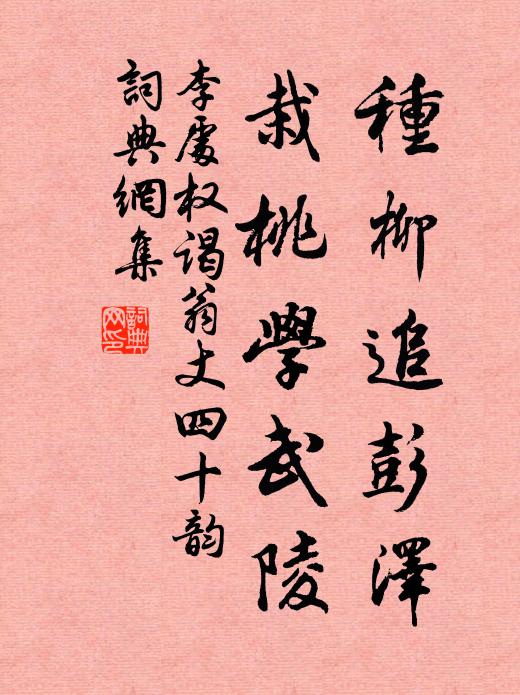 種柳追彭澤
栽桃學武陵
李處权謁翁丈四十韵
詞典網集
詞典网印